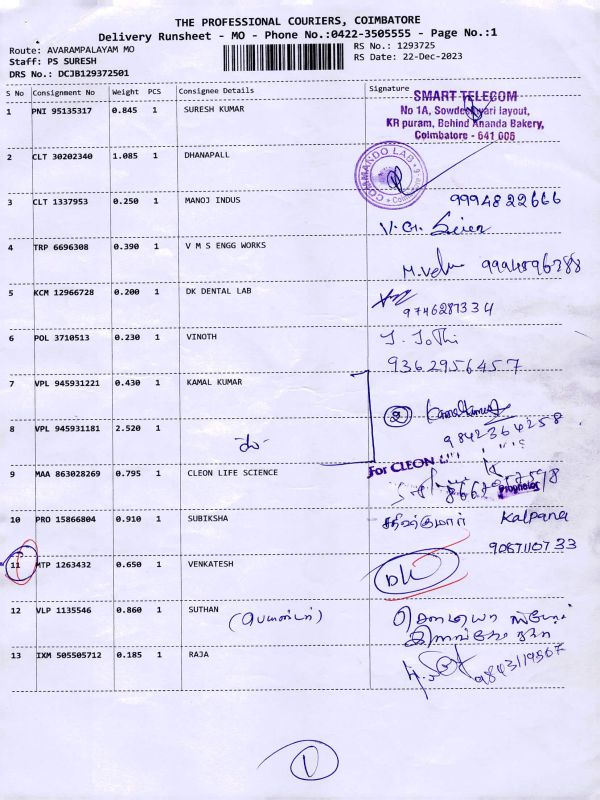 THE PROFESSIONAL COURIERS, COIMBATORE
Delivery Runsheet - MO - Phone No.:0422-3505555 - Page No.:1
Route: AVARAMPALAYAM MO
RS No.: 1293725
Staff: PS SURESH
RS Date: 22-Dec-2023
DRS No.: DCJB129372501
S No Consignment No Weight PCS Consignee Details Signature
SMART TELECOM
1 PNI 95135317 0.845 1 SURESH KUMAR
No 1A, layout,
KR puram, Behind Ananda Bakery,
Coimbatore - 641 006
2 CLT 30202340 1.085 1 DHANAPALL
COMMANDO LAB
3 CLT 1337953 0.250 1 MANOJ INDUS 9994822666
4 TRP 6696308 0.390 1 V M S ENGG WORKS
5 KCM 12966728 0.200 1 DK DENTAL LAB
9746287334
6 POL 3710513 0.230 1 VINOTH J. Jothi
9362956457
7 VPL 945931221 0.430 1 KAMAL KUMAR
2 Kamalkumar
8 VPL 945931181 2.520 1 9842364258
For CLEON
9 MAA 863028269 0.795 1 CLEON LIFE SCIENCE
Proprietor
10 PRO 15866804 0.910 1 SUBIKSHA சதீஷ்குமார் Kalpana
11 MTP 1263432 0.650 1 VENKATESH DL
12 VLP 1135546 0.860 1 SUTHAN
13 IXM 505505712 0.185 1 RAJA 9843119567